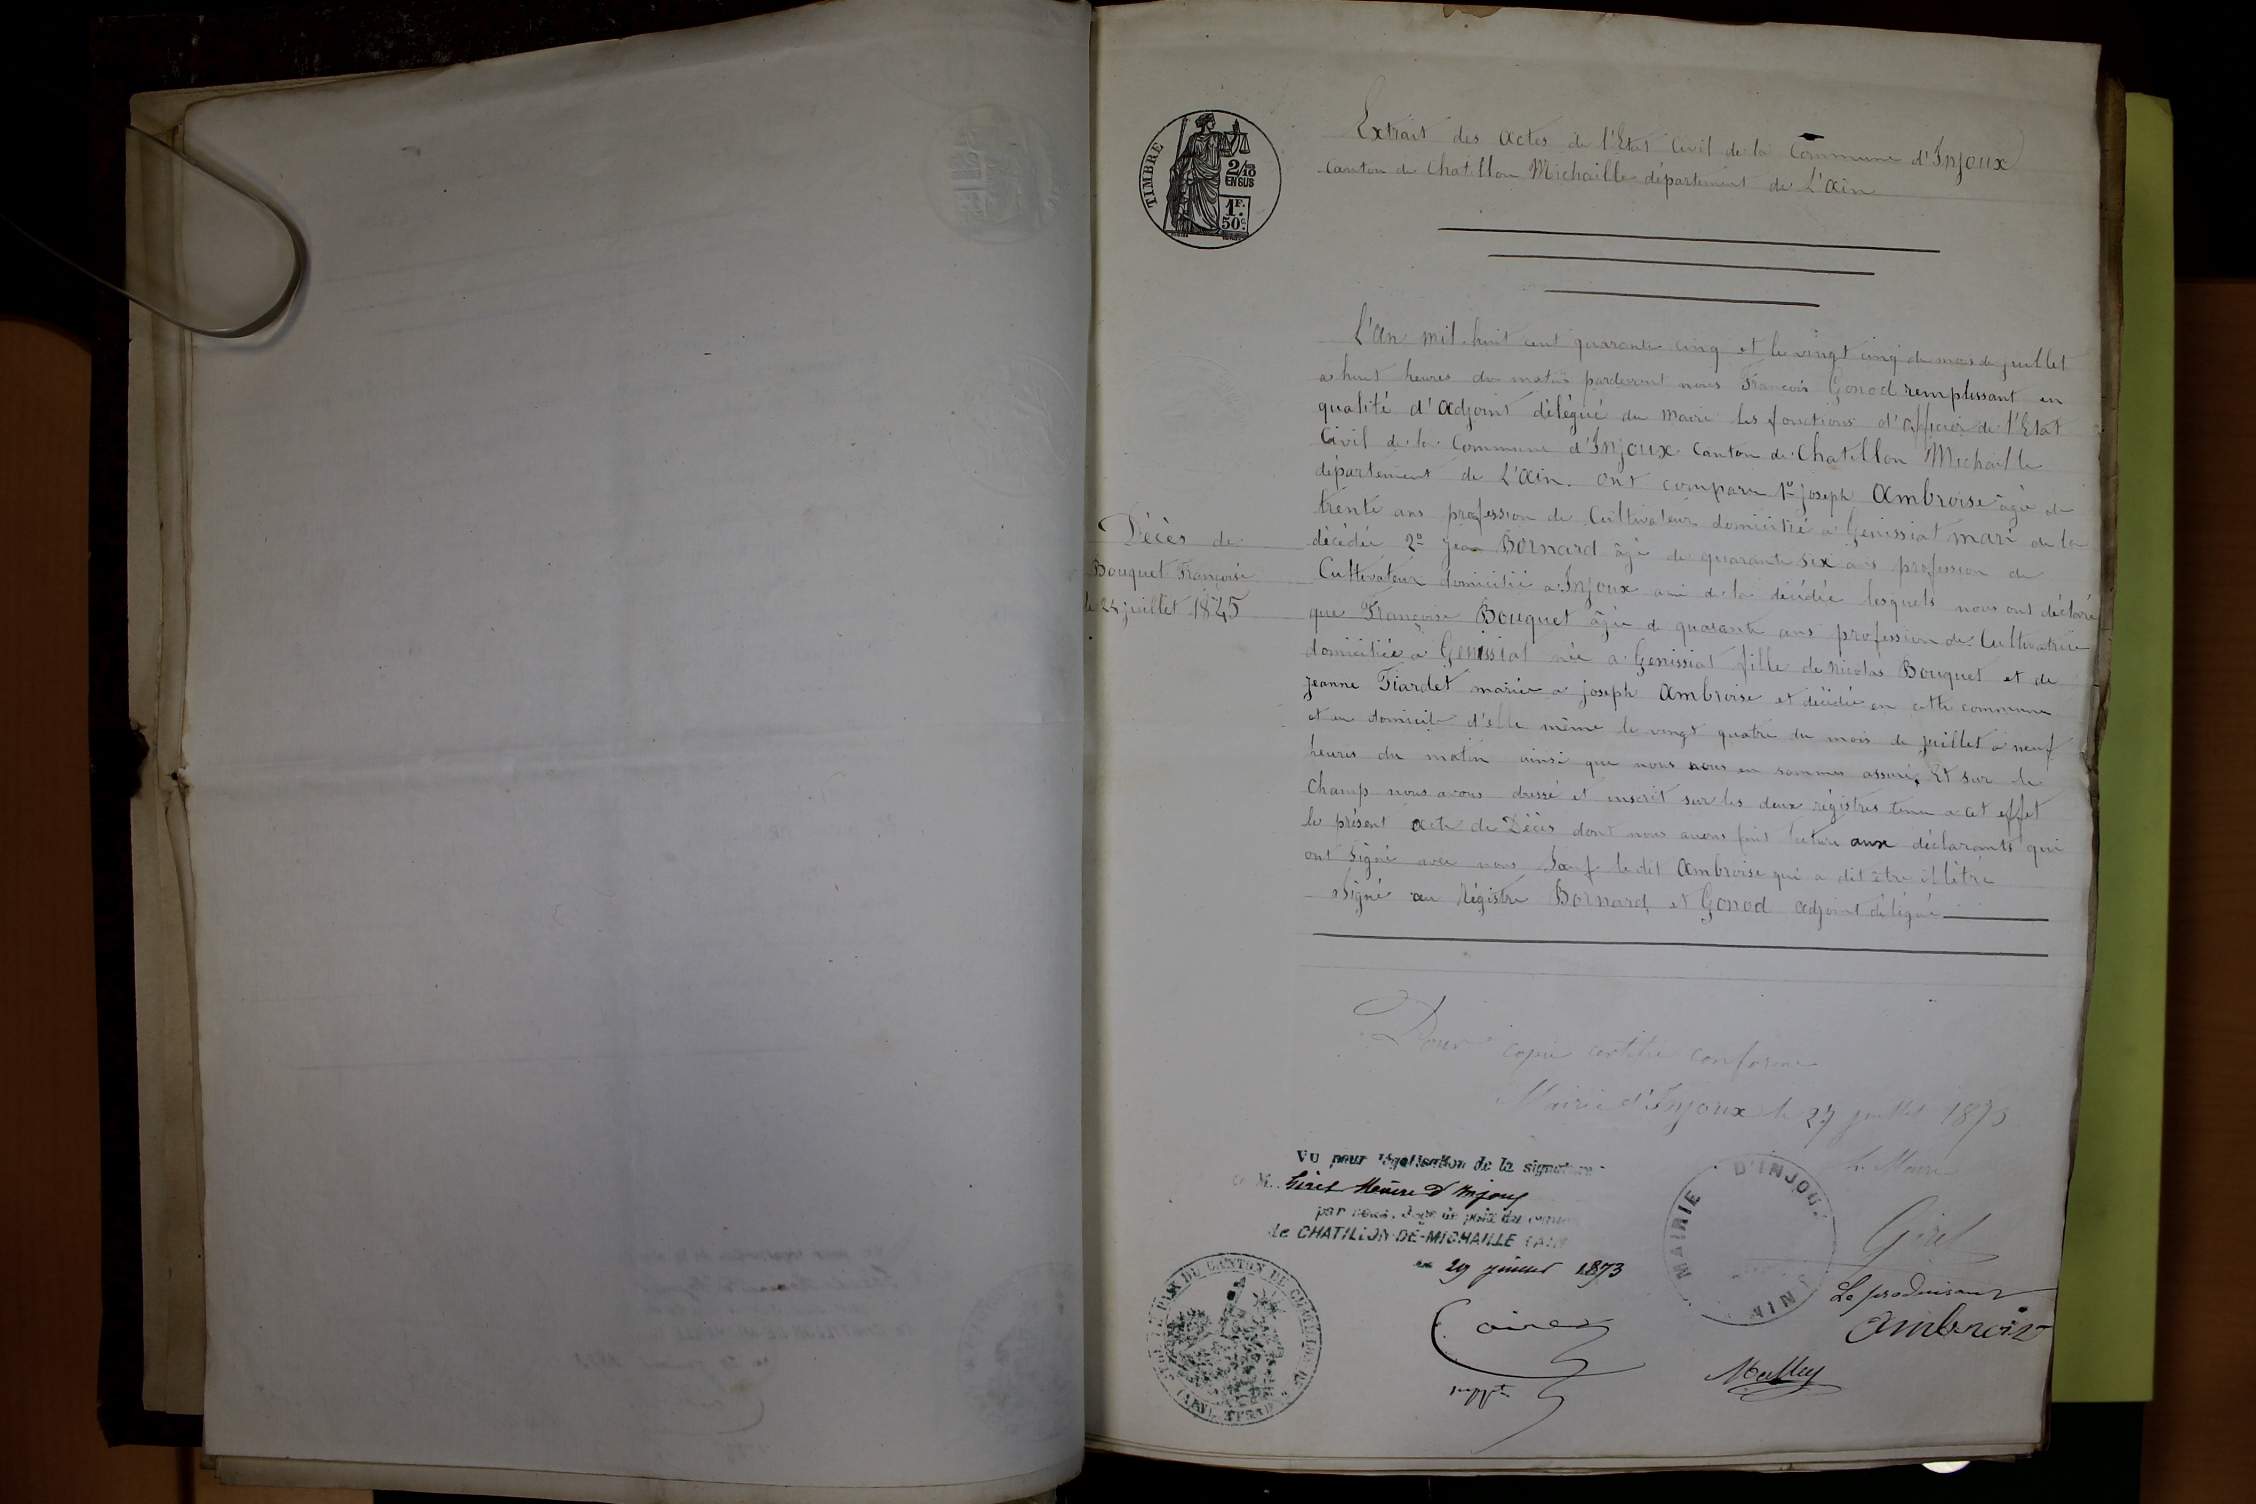 TIMBRE
2/10
EN SUS
1F.
50c.
Extrait des actes de l'Etat Civil de la Commune d'Injoux
Canton de Chatillon Michaille département de L'Ain
L'An mil huit cent quarante cinq et le vingt cinq du mois de juillet
a huit heures du matin pardevant nous François Gonod remplissant en
qualité d'Adjoint délégué du Maire les fonctions d'officier de l'Etat
Civil de la Commune d'Injoux Canton de Chatillon Michaille
département de L'Ain. Ont comparu 1º Joseph Ambroise âgé de
trente ans profession de Cultivateur domicilié a Genissiat mari de la
décédée 2º Jean Bornard âgé de quarante six ans profession de
Cultivateur domicilié a Injoux ami de la décédée lesquels nous ont déclaré
que Françoise Bouquet âgée de quarante ans profession de Cultivatrice
domiciliée a Genissiat née a Genissiat fille de Nicolas Bouquet et de
Jeanne Tiardet mariée a joseph Ambroise et décédée en cette commune
et au domicile d'elle même le vingt quatre du mois de juillet a neuf
heures du matin ainsi que nous nous en sommes assuré, Et sur le
Champ nous avons dressé et inscrit sur les deux régistres tenu a cet effet
le présent acte de Décès dont nous avons fait lecture aux déclarants qui
ont signé avec nous Sauf le dit Ambroise qui a dit être illitré
Signé au Régistre Bornard et Gonod adjoint délégué
Décès de
Bouquet Françoise
le 24 juillet 1845
Pour copie certifie conforme
Mairie d'Injoux le 27 juillet 1873
Le Maire
Girel
MAIRIE D'INJOUX
AIN
Vu pour légalisation de la signature
de M. Girel Maire d'Injoux
par nous, Juge de paix du canton
de CHATILLON-DE-MICHAILLE (AIN)
le 29 juillet 1873
suppt
Le produisant
Ambroise